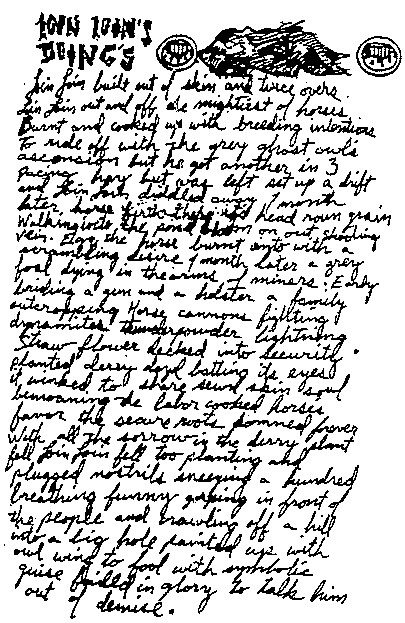 JOIN JOIN'S
DOING'S
Join Join built out of skin and twice overs.
Join Join out and off the mightiest of horses
Burnt and cooked up with breeding intentions
to ride off with the grey ghost owl's
ascension but he got another in 3
pacing hay but was left set up a drift
and Join Join diddled away 1 month
later, horse birth there head roun grain
Walking into the pond on out shooting
vein. the horse burnt onto with a
scrambling desire 1 month later a grey
foal dying in the arms of miners. Early
bridling a gun and a holster a family
outcropping Horse cannons fighting
dynamites powder lightning
Straw flower decked into security.
planted derry doyl batting its eyes
it winked to share sewn skin soul
bemoaning the labor cooked horses
favor the secure roots forever
With all the sorrow in the derry plant
fell Join Join fell too planting and
plugged nostrils sneezing a hundred
breathing funny in front of
the people and crawling off a hill
into a big hole painted up with
owl wing to fool with symbolic
guise in glory to talk him
out of demise.